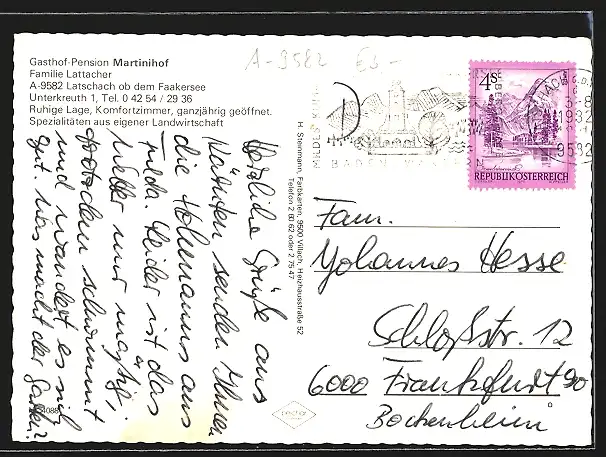 Gasthof-Pension Martinihof
Familie Lattacher
A-9582 Latschach ob dem Faakersee
Unterkreuth 1, Tel. 0 42 54 / 29 36
Ruhige Lage, Komfortzimmer, ganzjährig geöffnet.
Spezialitäten aus eigener Landwirtschaft
A-9582
E3-
4 S
REPUBLIK ÖSTERREICH
9582
H. Steinmann, Farbkarten, 9500 Villach, Heizhausstraße 52
Telefon 2 60 62 oder 2 75 47
Herzliche Grüße aus
Kärnten senden Ihnen
die Hohmanns aus
Fulda. Leider ist das
Wetter nur mäßig,
trotzdem schwimmt
und wandert es sich
gut. Was macht der Garten?
Fam.
Johannes Hesse
Schloßstr. 12
6000 Frankfurt 90
Bockenheim